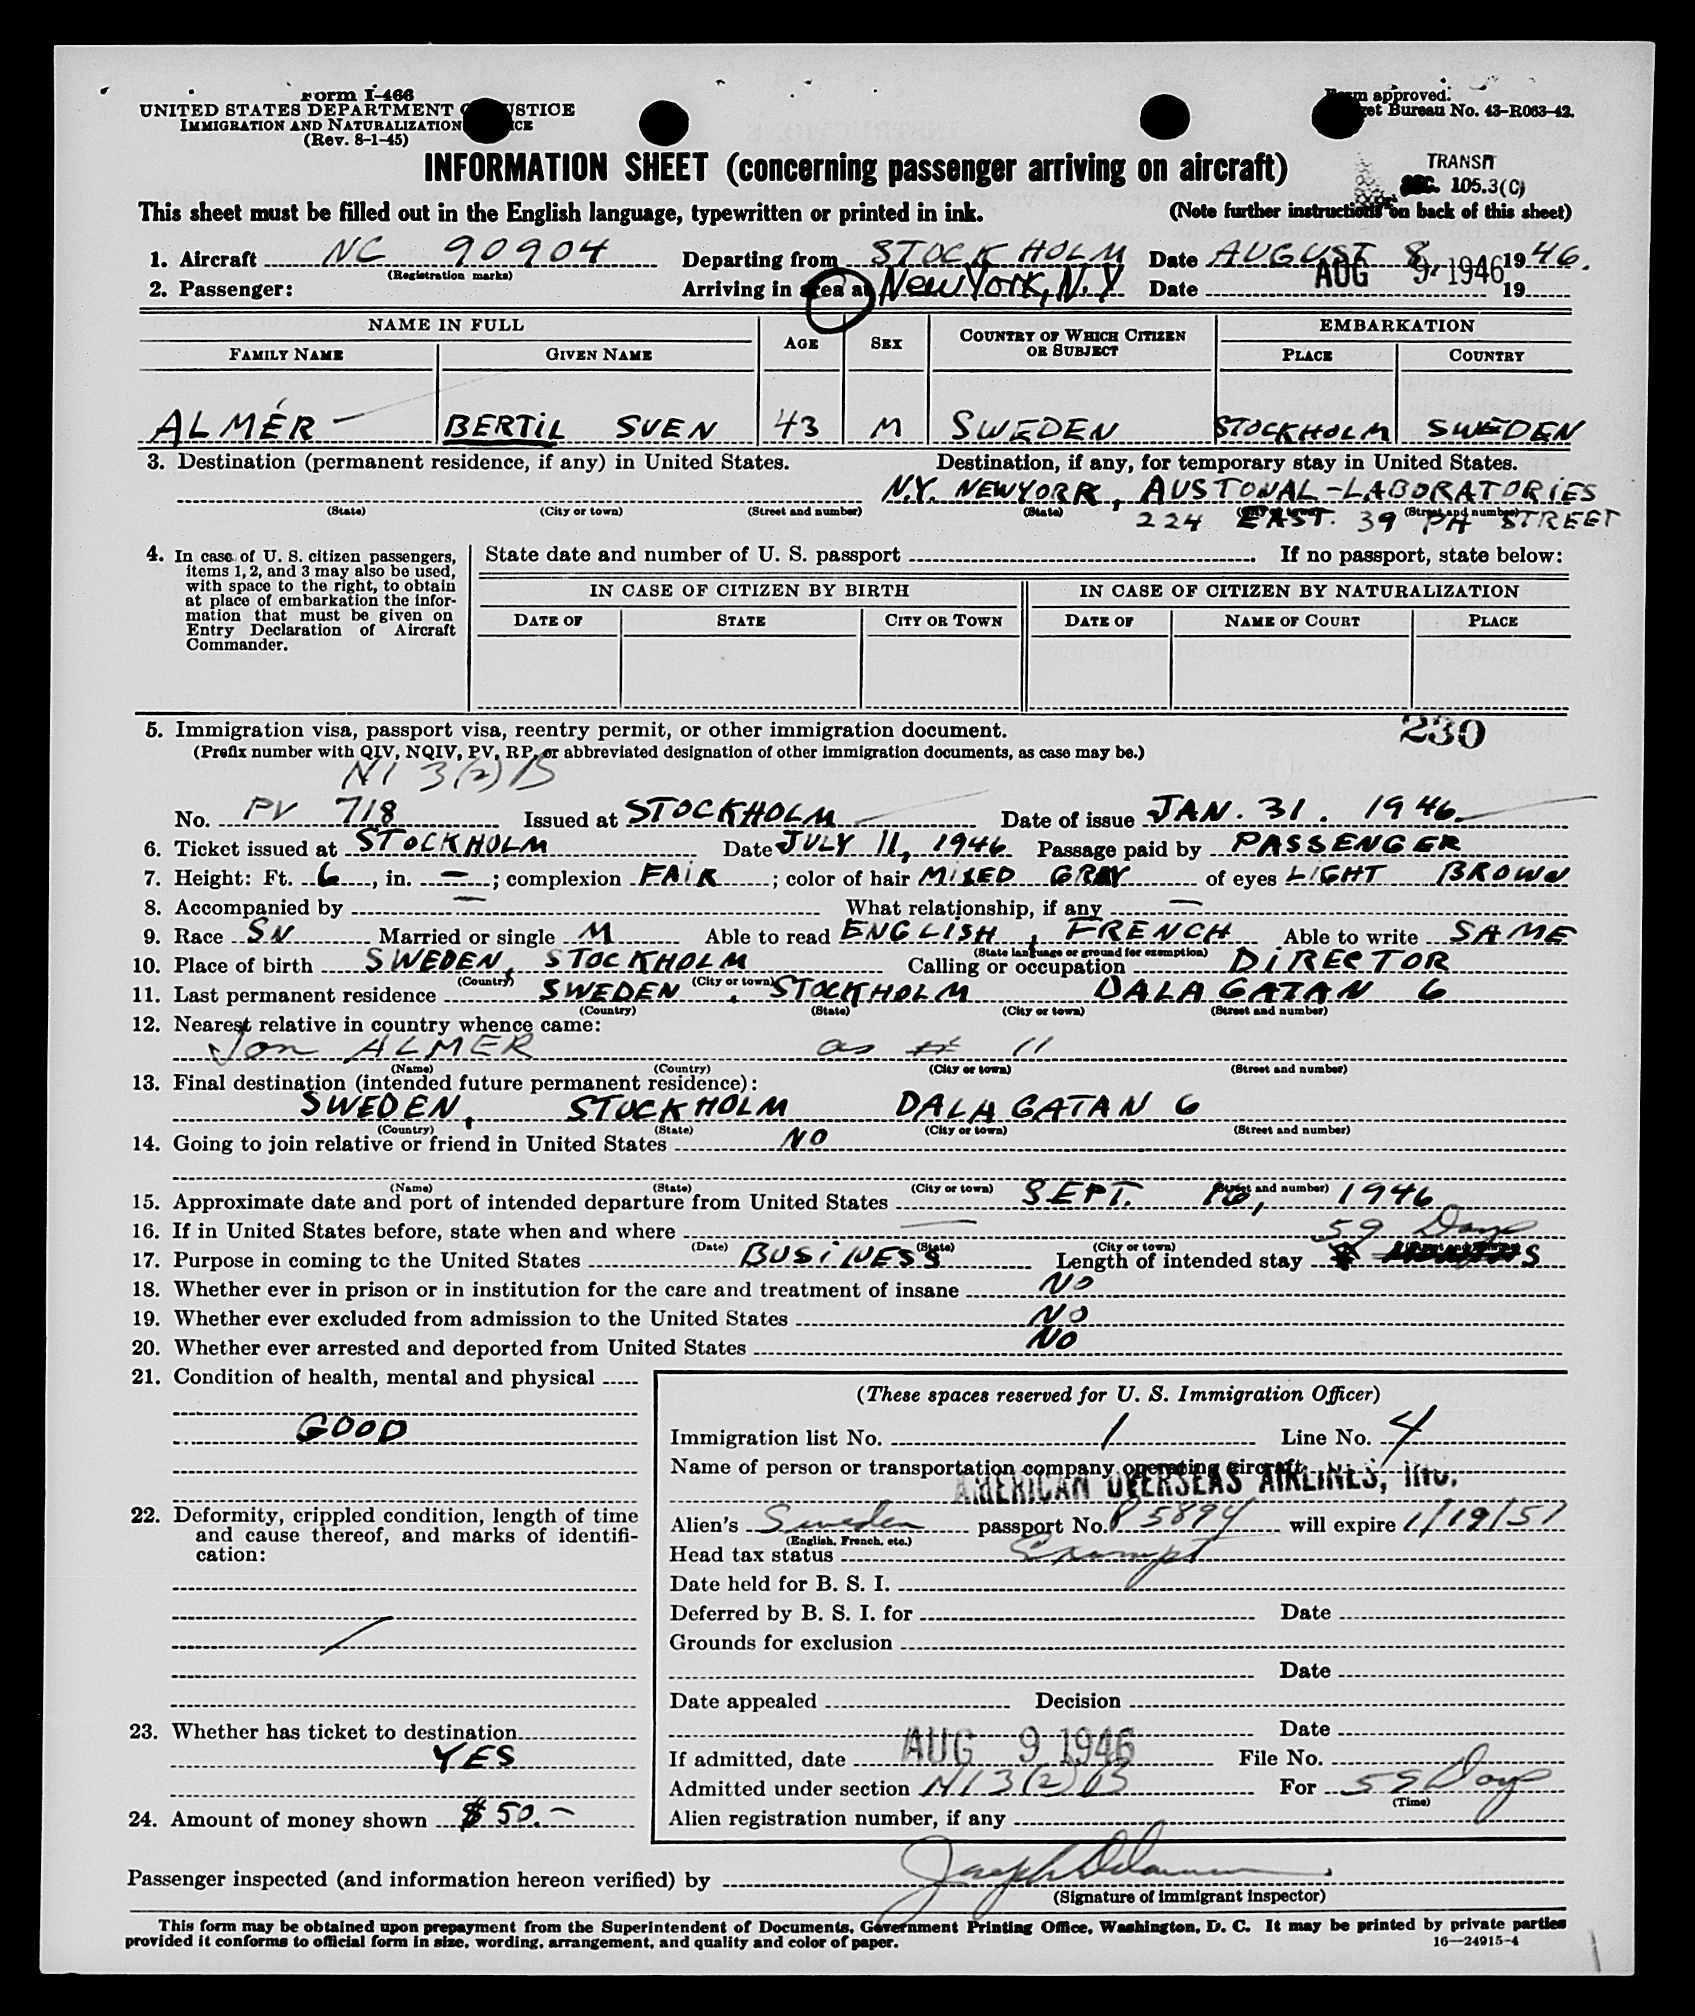 Form I-466
UNITED STATES DEPARTMENT OF JUSTICE
IMMIGRATION AND NATURALIZATION SERVICE
(Rev. 8-1-45)
Form approved.
Budget Bureau No. 43-R063-42.
INFORMATION SHEET (concerning passenger arriving on aircraft)
TRANSIT
SEC. 105.3(C)
This sheet must be filled out in the English language, typewritten or printed in ink. (Note further instructions on back of this sheet)
1. Aircraft NC 90904 Departing from STOCKHOLM Date AUGUST 8, 1946.
(Registration marks)
2. Passenger: Arriving in area at New York, N.Y Date AUG 9 1946 19
NAME IN FULL AGE SEX COUNTRY OF WHICH CITIZEN OR SUBJECT EMBARKATION
FAMILY NAME GIVEN NAME PLACE COUNTRY
ALMÉR BERTIL SVEN 43 M SWEDEN STOCKHOLM SWEDEN
3. Destination (permanent residence, if any) in United States. Destination, if any, for temporary stay in United States.
N.Y. NEWYORK, AUSTONAL-LABORATORIES
(State) (City or town) (Street and number) (State) (City or town) (Street and number)
224 EAST. 39 STREET
4. In case of U. S. citizen passengers, items 1, 2, and 3 may also be used, with space to the right, to obtain at place of embarkation the information that must be given on Entry Declaration of Aircraft Commander.
State date and number of U. S. passport . If no passport, state below:
IN CASE OF CITIZEN BY BIRTH IN CASE OF CITIZEN BY NATURALIZATION
DATE OF STATE CITY OR TOWN DATE OF NAME OF COURT PLACE
5. Immigration visa, passport visa, reentry permit, or other immigration document. 230
(Prefix number with QIV, NQIV, PV, RP, or abbreviated designation of other immigration documents, as case may be.)
NI 3(2)B
No. PV 718 Issued at STOCKHOLM Date of issue JAN. 31. 1946.
6. Ticket issued at STOCKHOLM Date JULY 11, 1946 Passage paid by PASSENGER
7. Height: Ft. 6, in. —; complexion FAIR; color of hair MIXED GRAY of eyes LIGHT BROWN
8. Accompanied by — What relationship, if any —
9. Race SN Married or single M Able to read ENGLISH, FRENCH Able to write SAME
(State language or ground for exemption)
10. Place of birth SWEDEN, STOCKHOLM Calling or occupation DIRECTOR
(Country) (City or town)
11. Last permanent residence SWEDEN, STOCKHOLM DALAGATAN 6
(Country) (State) (City or town) (Street and number)
12. Nearest relative in country whence came:
Son ALMER as # 11
(Name) (Country) (City or town) (Street and number)
13. Final destination (intended future permanent residence):
SWEDEN, STOCKHOLM DALAGATAN 6
(Country) (State) (City or town) (Street and number)
14. Going to join relative or friend in United States NO
(Name) (State) (City or town) (Street and number)
15. Approximate date and port of intended departure from United States SEPT. 1946
16. If in United States before, state when and where —
(Date) (State) (City or town) (Street and number)
59 Days
17. Purpose in coming to the United States BUSINESS Length of intended stay
18. Whether ever in prison or in institution for the care and treatment of insane NO
19. Whether ever excluded from admission to the United States NO
20. Whether ever arrested and deported from United States NO
21. Condition of health, mental and physical
GOOD
22. Deformity, crippled condition, length of time and cause thereof, and marks of identification:
23. Whether has ticket to destination
YES
24. Amount of money shown $ 50.-
(These spaces reserved for U. S. Immigration Officer)
Immigration list No. 1 Line No. 4
Name of person or transportation company operating aircraft
AMERICAN OVERSEAS AIRLINES, INC.
Alien's Sweden passport No. P 5894 will expire 1/19/51
(English, French, etc.)
Head tax status Exempt
Date held for B. S. I.
Deferred by B. S. I. for Date
Grounds for exclusion
Date
Date appealed Decision
Date
If admitted, date AUG 9 1946 File No.
Admitted under section NI 3(2)B For 59 Days
(Time)
Alien registration number, if any
Passenger inspected (and information hereon verified) by
(Signature of immigrant inspector)
This form may be obtained upon prepayment from the Superintendent of Documents, Government Printing Office, Washington, D. C. It may be printed by private parties
provided it conforms to official form in size, wording, arrangement, and quality and color of paper. 16—24915-4